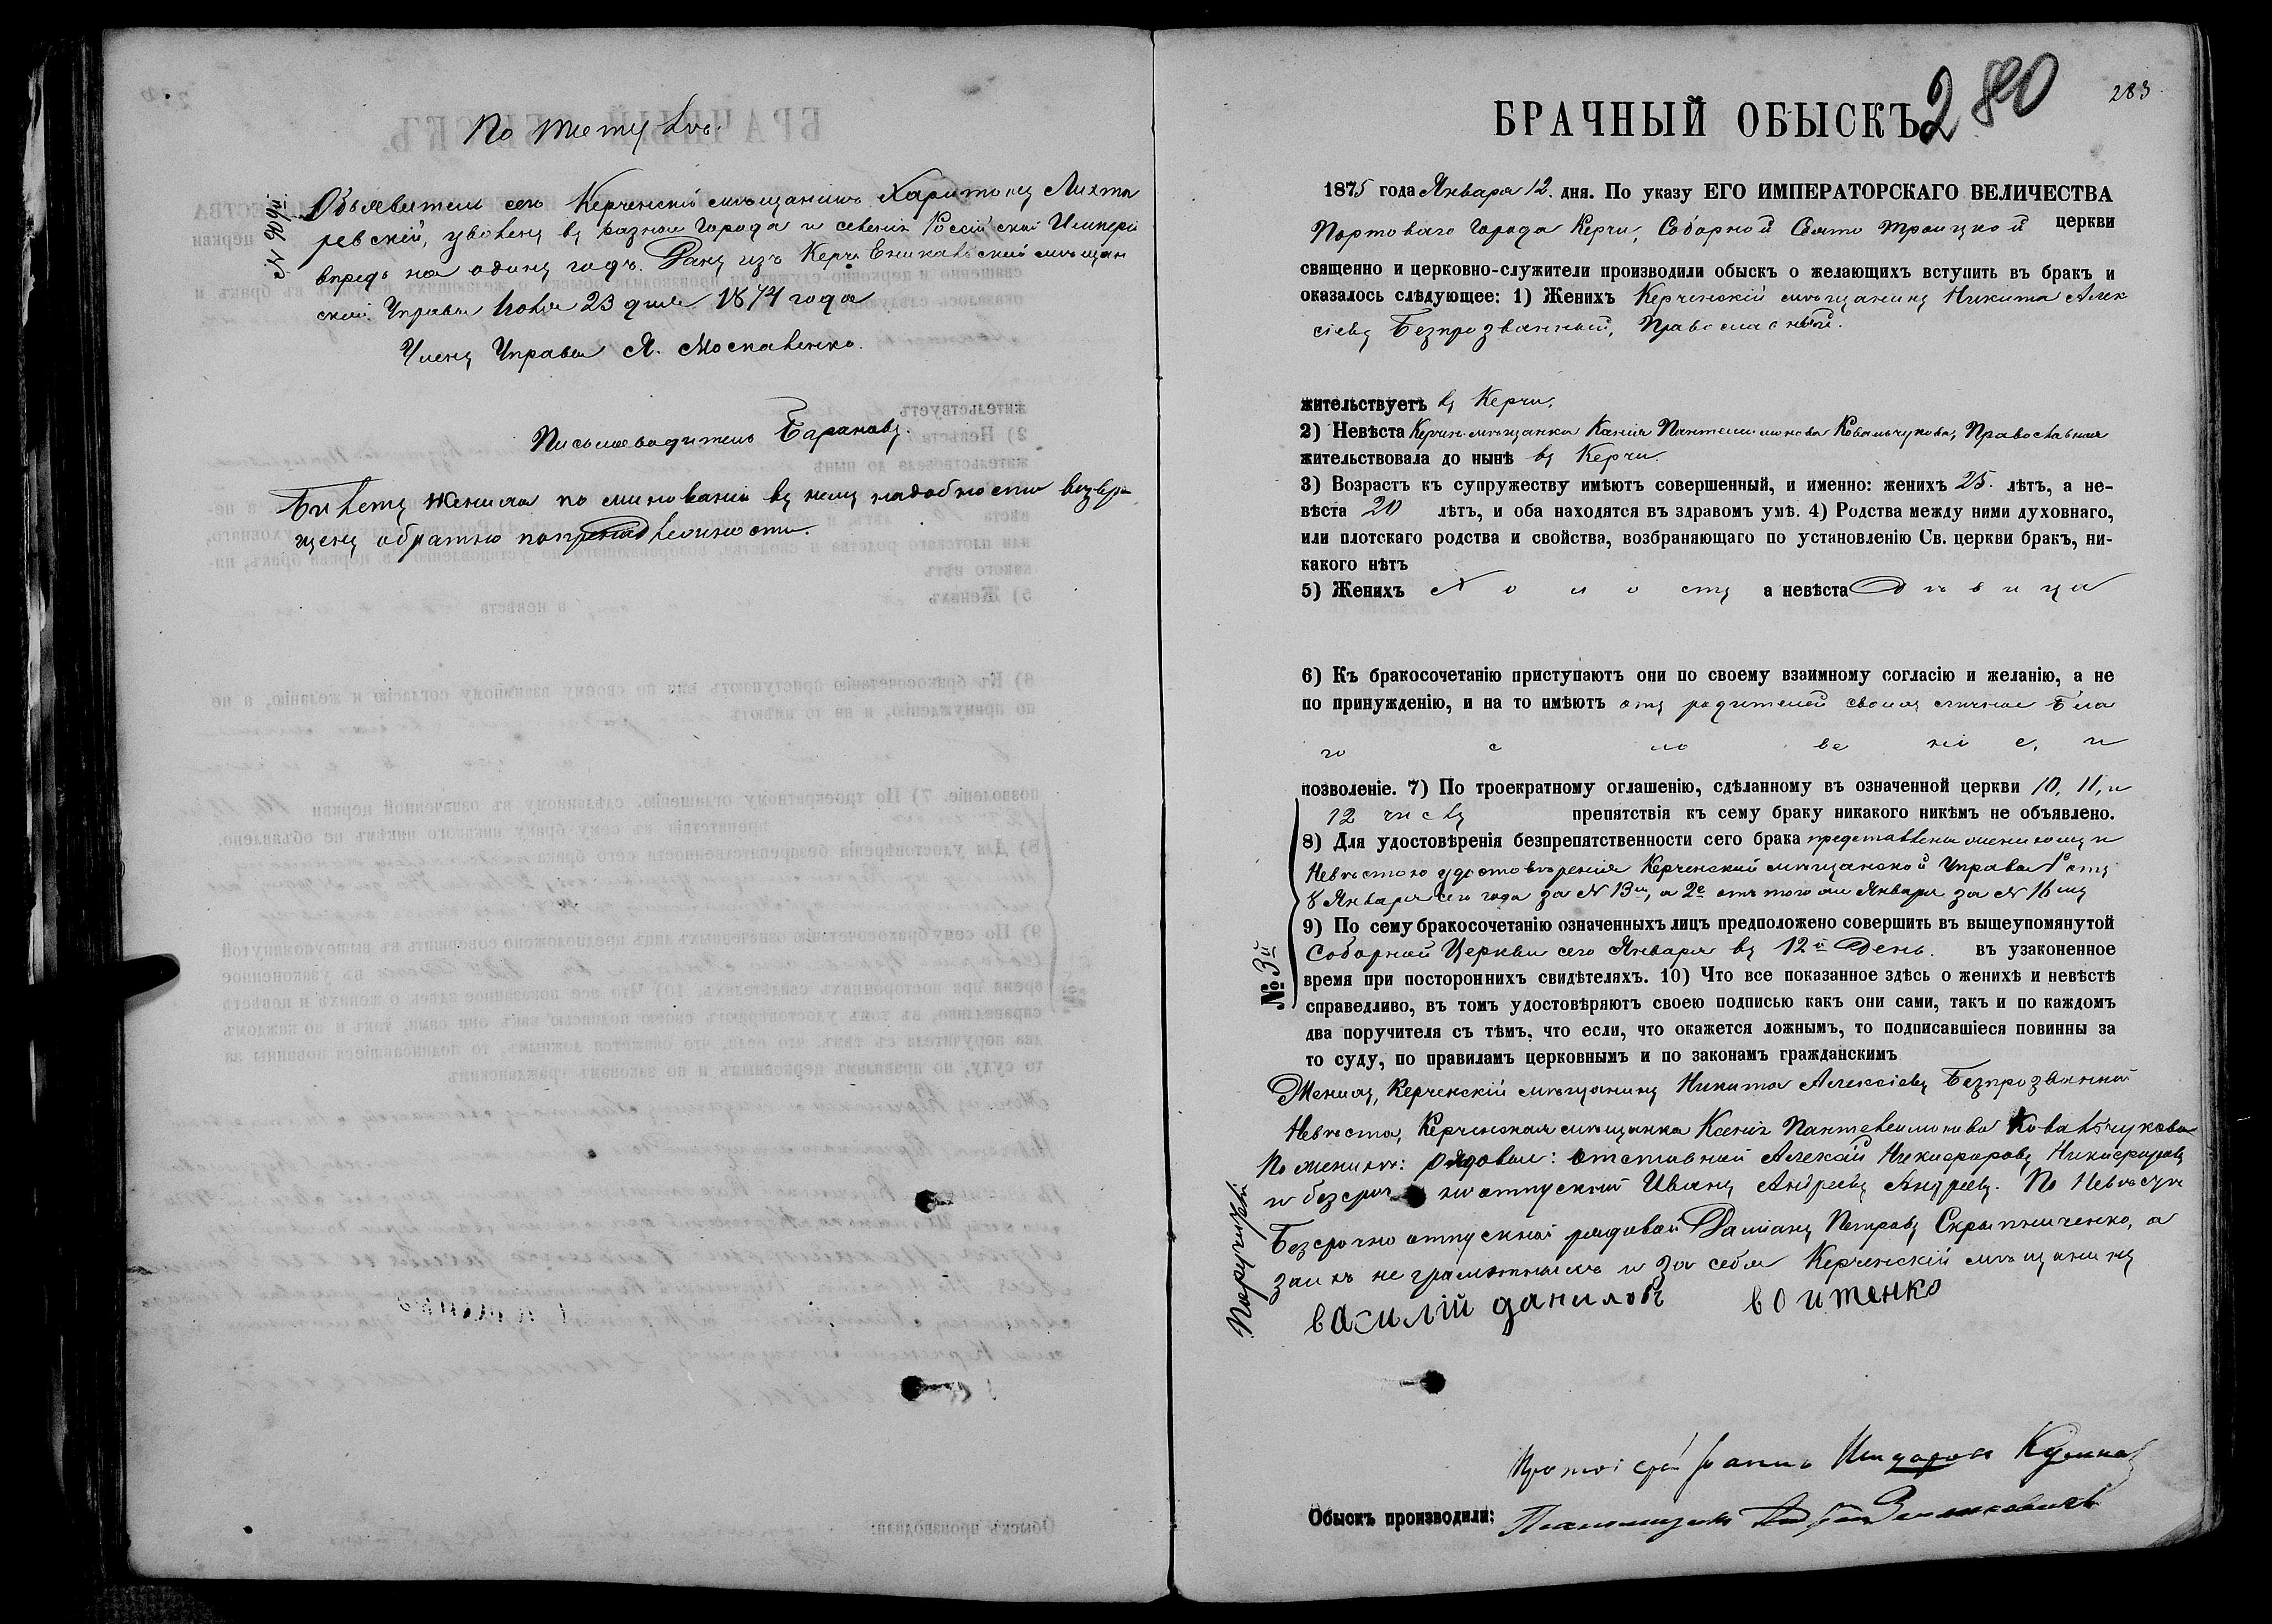 По тому жъ.
№ 909й
Объявитель сего Керченскій мѣщанинъ Харитонъ Лихта
ревскій, уволенъ въ разные города и селенія Россійской Имперіи
впредь на одинъ годъ. Данъ изъ Керчь Еникальской мѣщан
ской Управы Іюня 23 дня 1874 года
Членъ Управы Я. Москаленко.
Письмоводитель Барановъ.
Билетъ жениха по минованіи въ немъ надобности возвра
щенъ обратно по принадлежности.
280
283
БРАЧНЫЙ ОБЫСКЪ
1875 года Января 12 дня. По указу ЕГО ИМПЕРАТОРСКАГО ВЕЛИЧЕСТВА
Портоваго города Керчи, Соборной Свято Троицкой церкви
священно и церковно-служители производили обыскъ о желающихъ вступить въ бракъ и
оказалось слѣдующее: 1) Женихъ Керченскій мѣщанинъ Никита Алек
сіевъ Безпрозванный, Православный.
жительствуетъ въ Керчи,
2) Невѣста Керчен. мѣщанка Ксенія Пантелеимонова Ковальчукова, Православная
жительствовала до нынѣ въ Керчи.
3) Возрастъ къ супружеству имѣютъ совершенный, и именно: женихъ 25. лѣтъ, а не-
вѣста 20 лѣтъ, и оба находятся въ здравомъ умѣ. 4) Родства между ними духовнаго,
или плотскаго родства и свойства, возбраняющаго по установленію Св. церкви бракъ, ни-
какого нѣтъ
5) Женихъ Холостъ а невѣста Дѣвица
6) Къ бракосочетанію приступаютъ они по своему взаимному согласію и желанію, а не
по принужденію, и на то имѣютъ отъ родителей своихъ личное Бла
го с ло ве ні е, и
позволеніе. 7) По троекратному оглашенію, сдѣланному въ означенной церкви 10, 11, и
12 числъ препятствія къ сему браку никакого никѣмъ не объявлено.
8) Для удостовѣренія безпрепятственности сего брака представлены женихомъ и
Невѣстою удостовѣренія Керченской мѣщанской Управы 1е отъ
8 Января сего года за № 13мъ, а 2е отъ того же Января за № 16мъ
9) По сему бракосочетанію означенныхъ лицъ предположено совершить въ вышеупомянутой
Соборной Церкви сего Января въ 12й День. въ узаконенное
время при постороннихъ свидѣтеляхъ. 10) Что все показанное здѣсь о женихѣ и невѣстѣ
справедливо, въ томъ удостовѣряютъ своею подписью какъ они сами, такъ и по каждомъ
два поручителя съ тѣмъ, что если, что окажется ложнымъ, то подписавшіеся повинны за
то суду, по правиламъ церковнымъ и по законамъ гражданскимъ
№ 3й
Женихъ, Керченскій мѣщанинъ Никита Алексіевъ Безпрозванный
Невѣста, Керченская мѣщанка Ксенія Пантелеимонова Ковальчукова
Поручители
По женихѣ: рядовые: отставной Алексій Никифоровъ Никифоровъ
и безсрочно отпускной Иванъ Андреевъ Андреевъ. По Невѣстѣ
Безсрочно отпускной рядовой Даміанъ Петровъ Скрыпниченко, а
за нихъ неграмотныхъ и за себя Керченскій мѣщанинъ
василій даниловъ воитенко
Обыскъ производили: